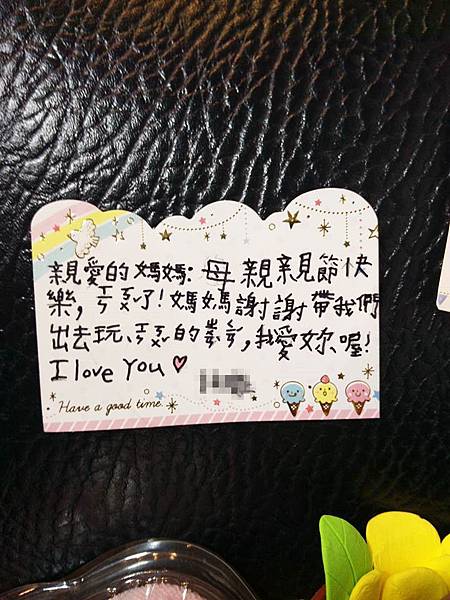 親愛的媽媽: 母親親節快
樂, 了!媽媽謝謝帶我們
出去玩、 的 ,我愛妳、喔!
I love You ♡
Have a good time.